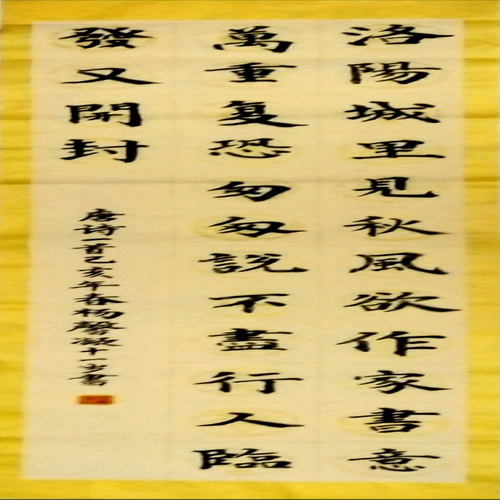 洛陽城里見秋風欲作家書意
萬重复恐匆匆說不盡行人臨
發又開封
唐诗一首己亥年春杨馨凝十一岁書